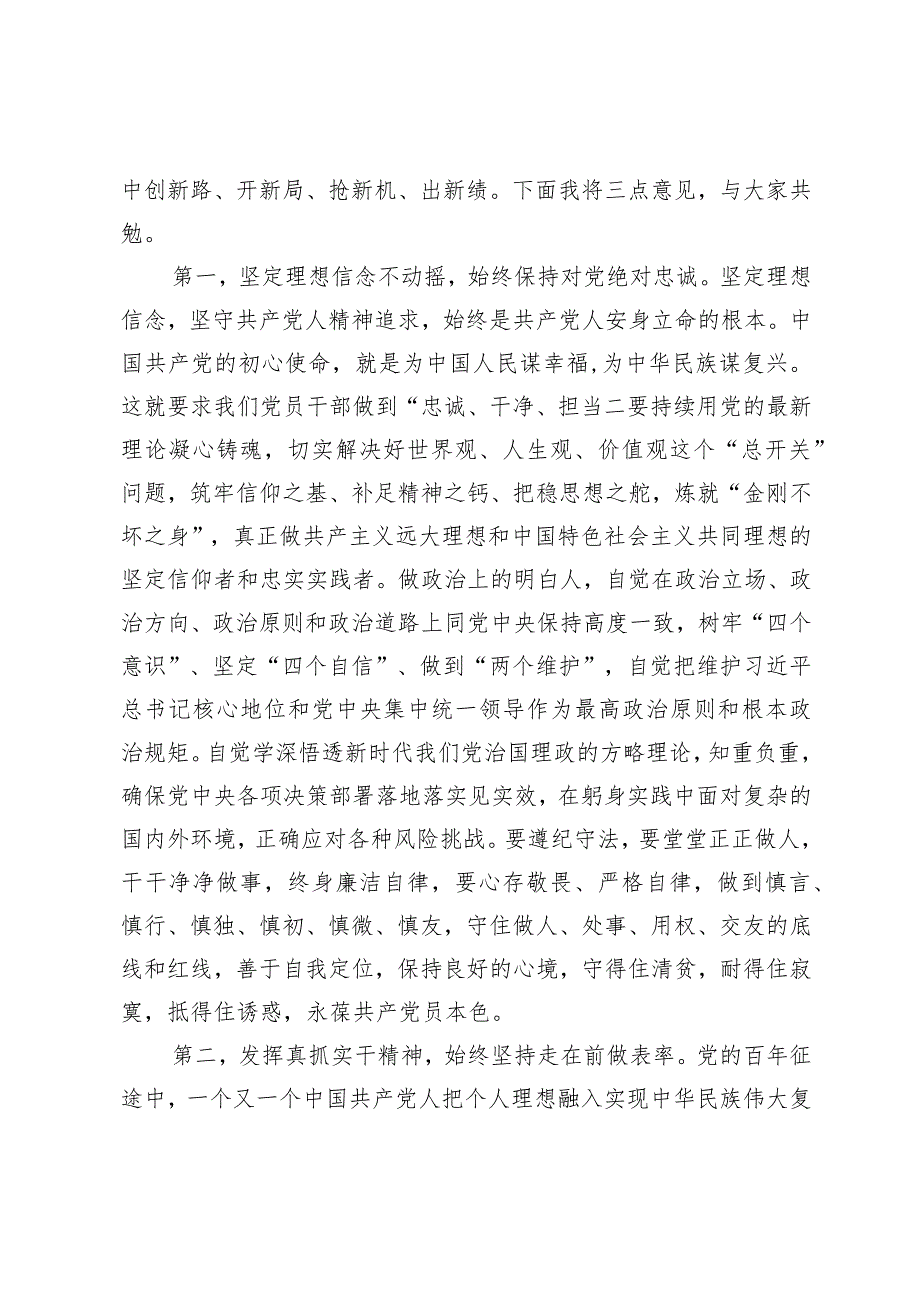 中创新路、开新局、抢新机、出新绩。下面我将三点意见，与大家共
勉。
第一，坚定理想信念不动摇，始终保持对党绝对忠诚。坚定理想
信念，坚守共产党人精神追求，始终是共产党人安身立命的根本。中
国共产党的初心使命，就是为中国人民谋幸福,为中华民族谋复兴。
这就要求我们党员干部做到“忠诚、干净、担当二要持续用党的最新
理论凝心铸魂，切实解决好世界观、人生观、价值观这个“总开关”
问题，筑牢信仰之基、补足精神之钙、把稳思想之舵，炼就“金刚不
坏之身”，真正做共产主义远大理想和中国特色社会主义共同理想的
坚定信仰者和忠实实践者。做政治上的明白人，自觉在政治立场、政
治方向、政治原则和政治道路上同党中央保持高度一致，树牢“四个
意识”、坚定“四个自信”、做到“两个维护”，自觉把维护习近平
总书记核心地位和党中央集中统一领导作为最高政治原则和根本政
治规矩。自觉学深悟透新时代我们党治国理政的方略理论，知重负重，
确保党中央各项决策部署落地落实见实效，在躬身实践中面对复杂的
国内外环境，正确应对各种风险挑战。要遵纪守法，要堂堂正正做人，
干干净净做事，终身廉洁自律，要心存敬畏、严格自律，做到慎言、
慎行、慎独、慎初、慎微、慎友，守住做人、处事、用权、交友的底
线和红线，善于自我定位，保持良好的心境，守得住清贫，耐得住寂
寞，抵得住诱惑，永葆共产党员本色。
第二，发挥真抓实干精神，始终坚持走在前做表率。党的百年征
途中，一个又一个中国共产党人把个人理想融入实现中华民族伟大复